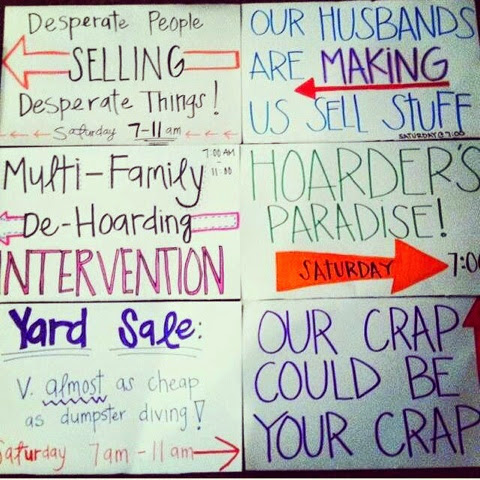 Desperate People
SELLING
Desperate Things!
Saturday 7-11am
OUR HUSBANDS
ARE MAKING
US SELL STUFF
SATURDAY@7:00
7:00 AM
11:00
Multi-Family
De-Hoarding
INTERVENTION
HOARDER'S
PARADISE!
SATURDAY 7:00
Yard Sale:
V. almost as cheap
as dumpster diving!
Saturday 7am-11am
OUR CRAP
COULD BE
YOUR CRAP